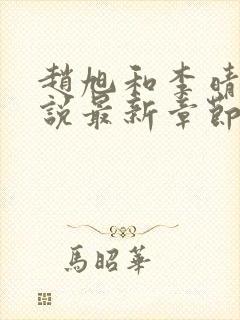 趙旭和李晴
說最新章節
馬昭華